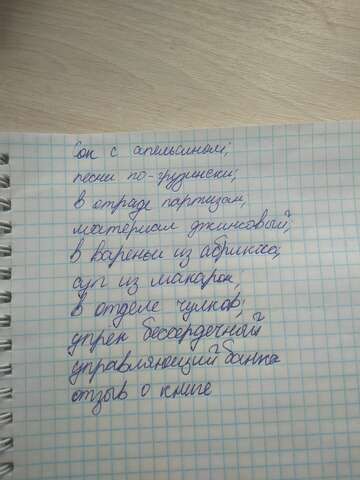 он с апельсином;
песни по-грузински;
в отряде партизан,
материал джинсовый;
в вареньи из абрикоса,
суп из макарон;
в отделе чулков;
упрек бессердечный
управляющий банка
отзыв о книге